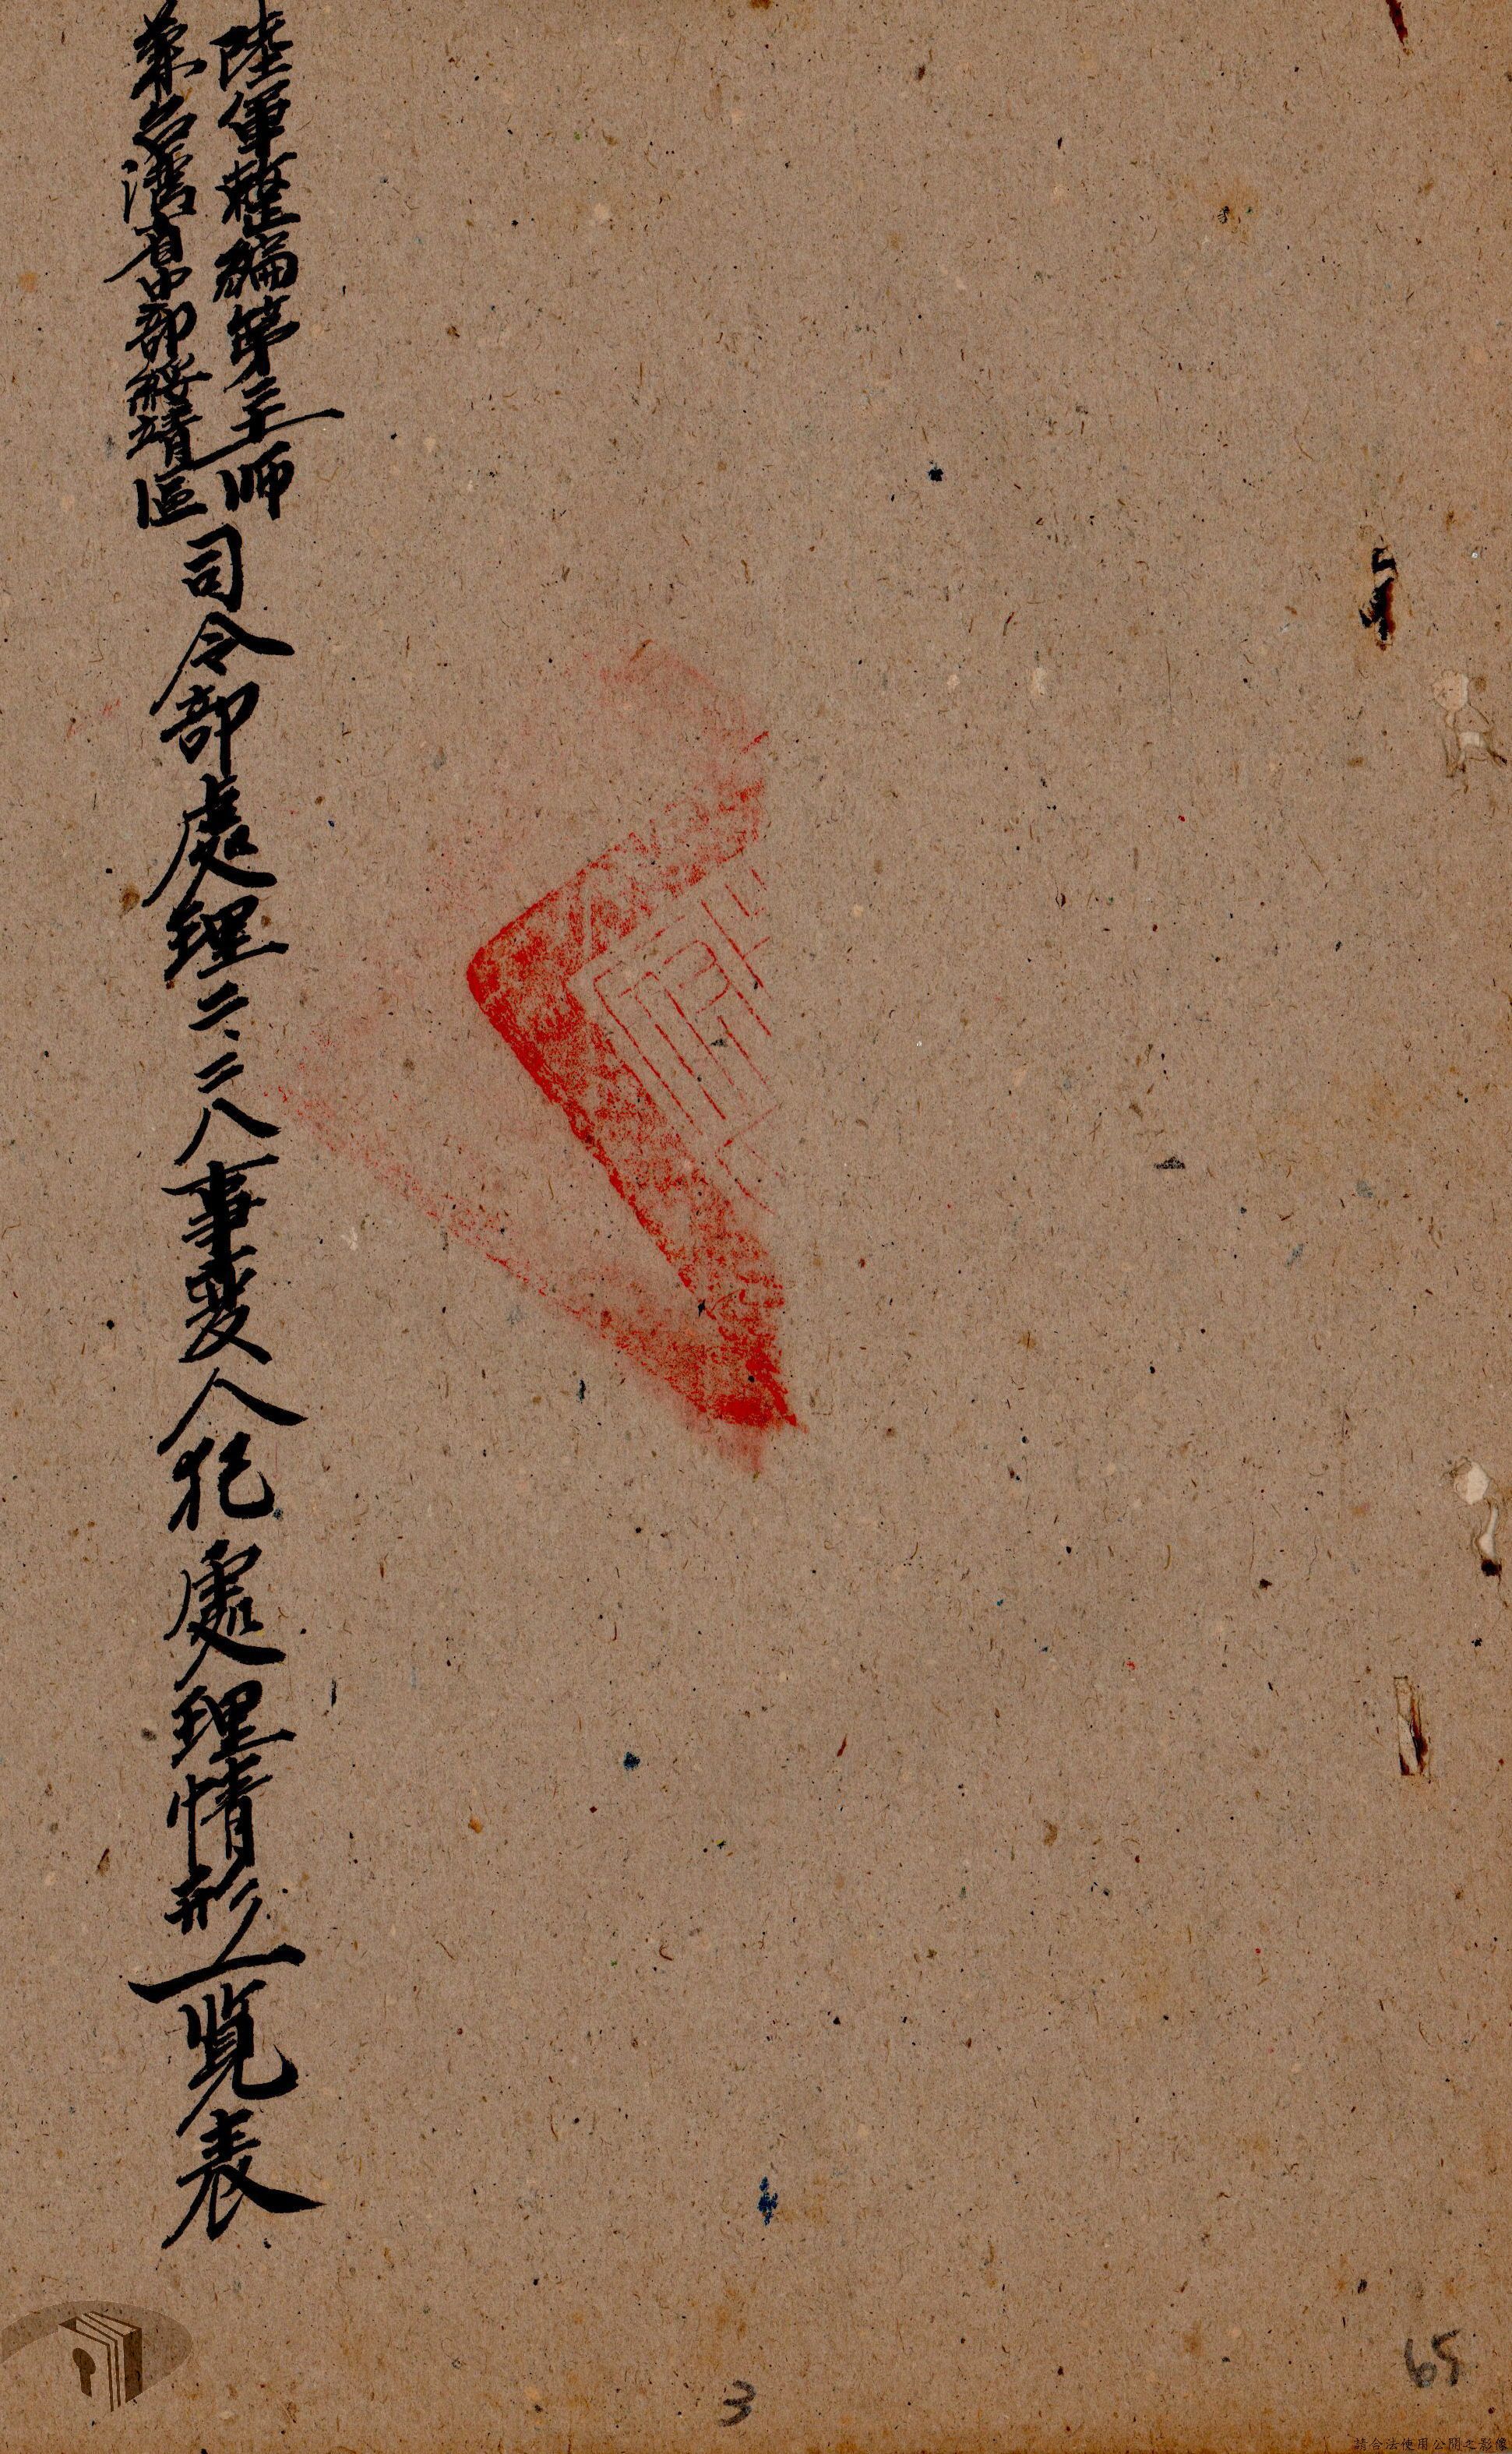 陸軍整編第二十一師
兼台灣省中部綏靖區
司令部處理二、二八事變人犯處理情形一覽表
3
65
請合法使用公開之影像